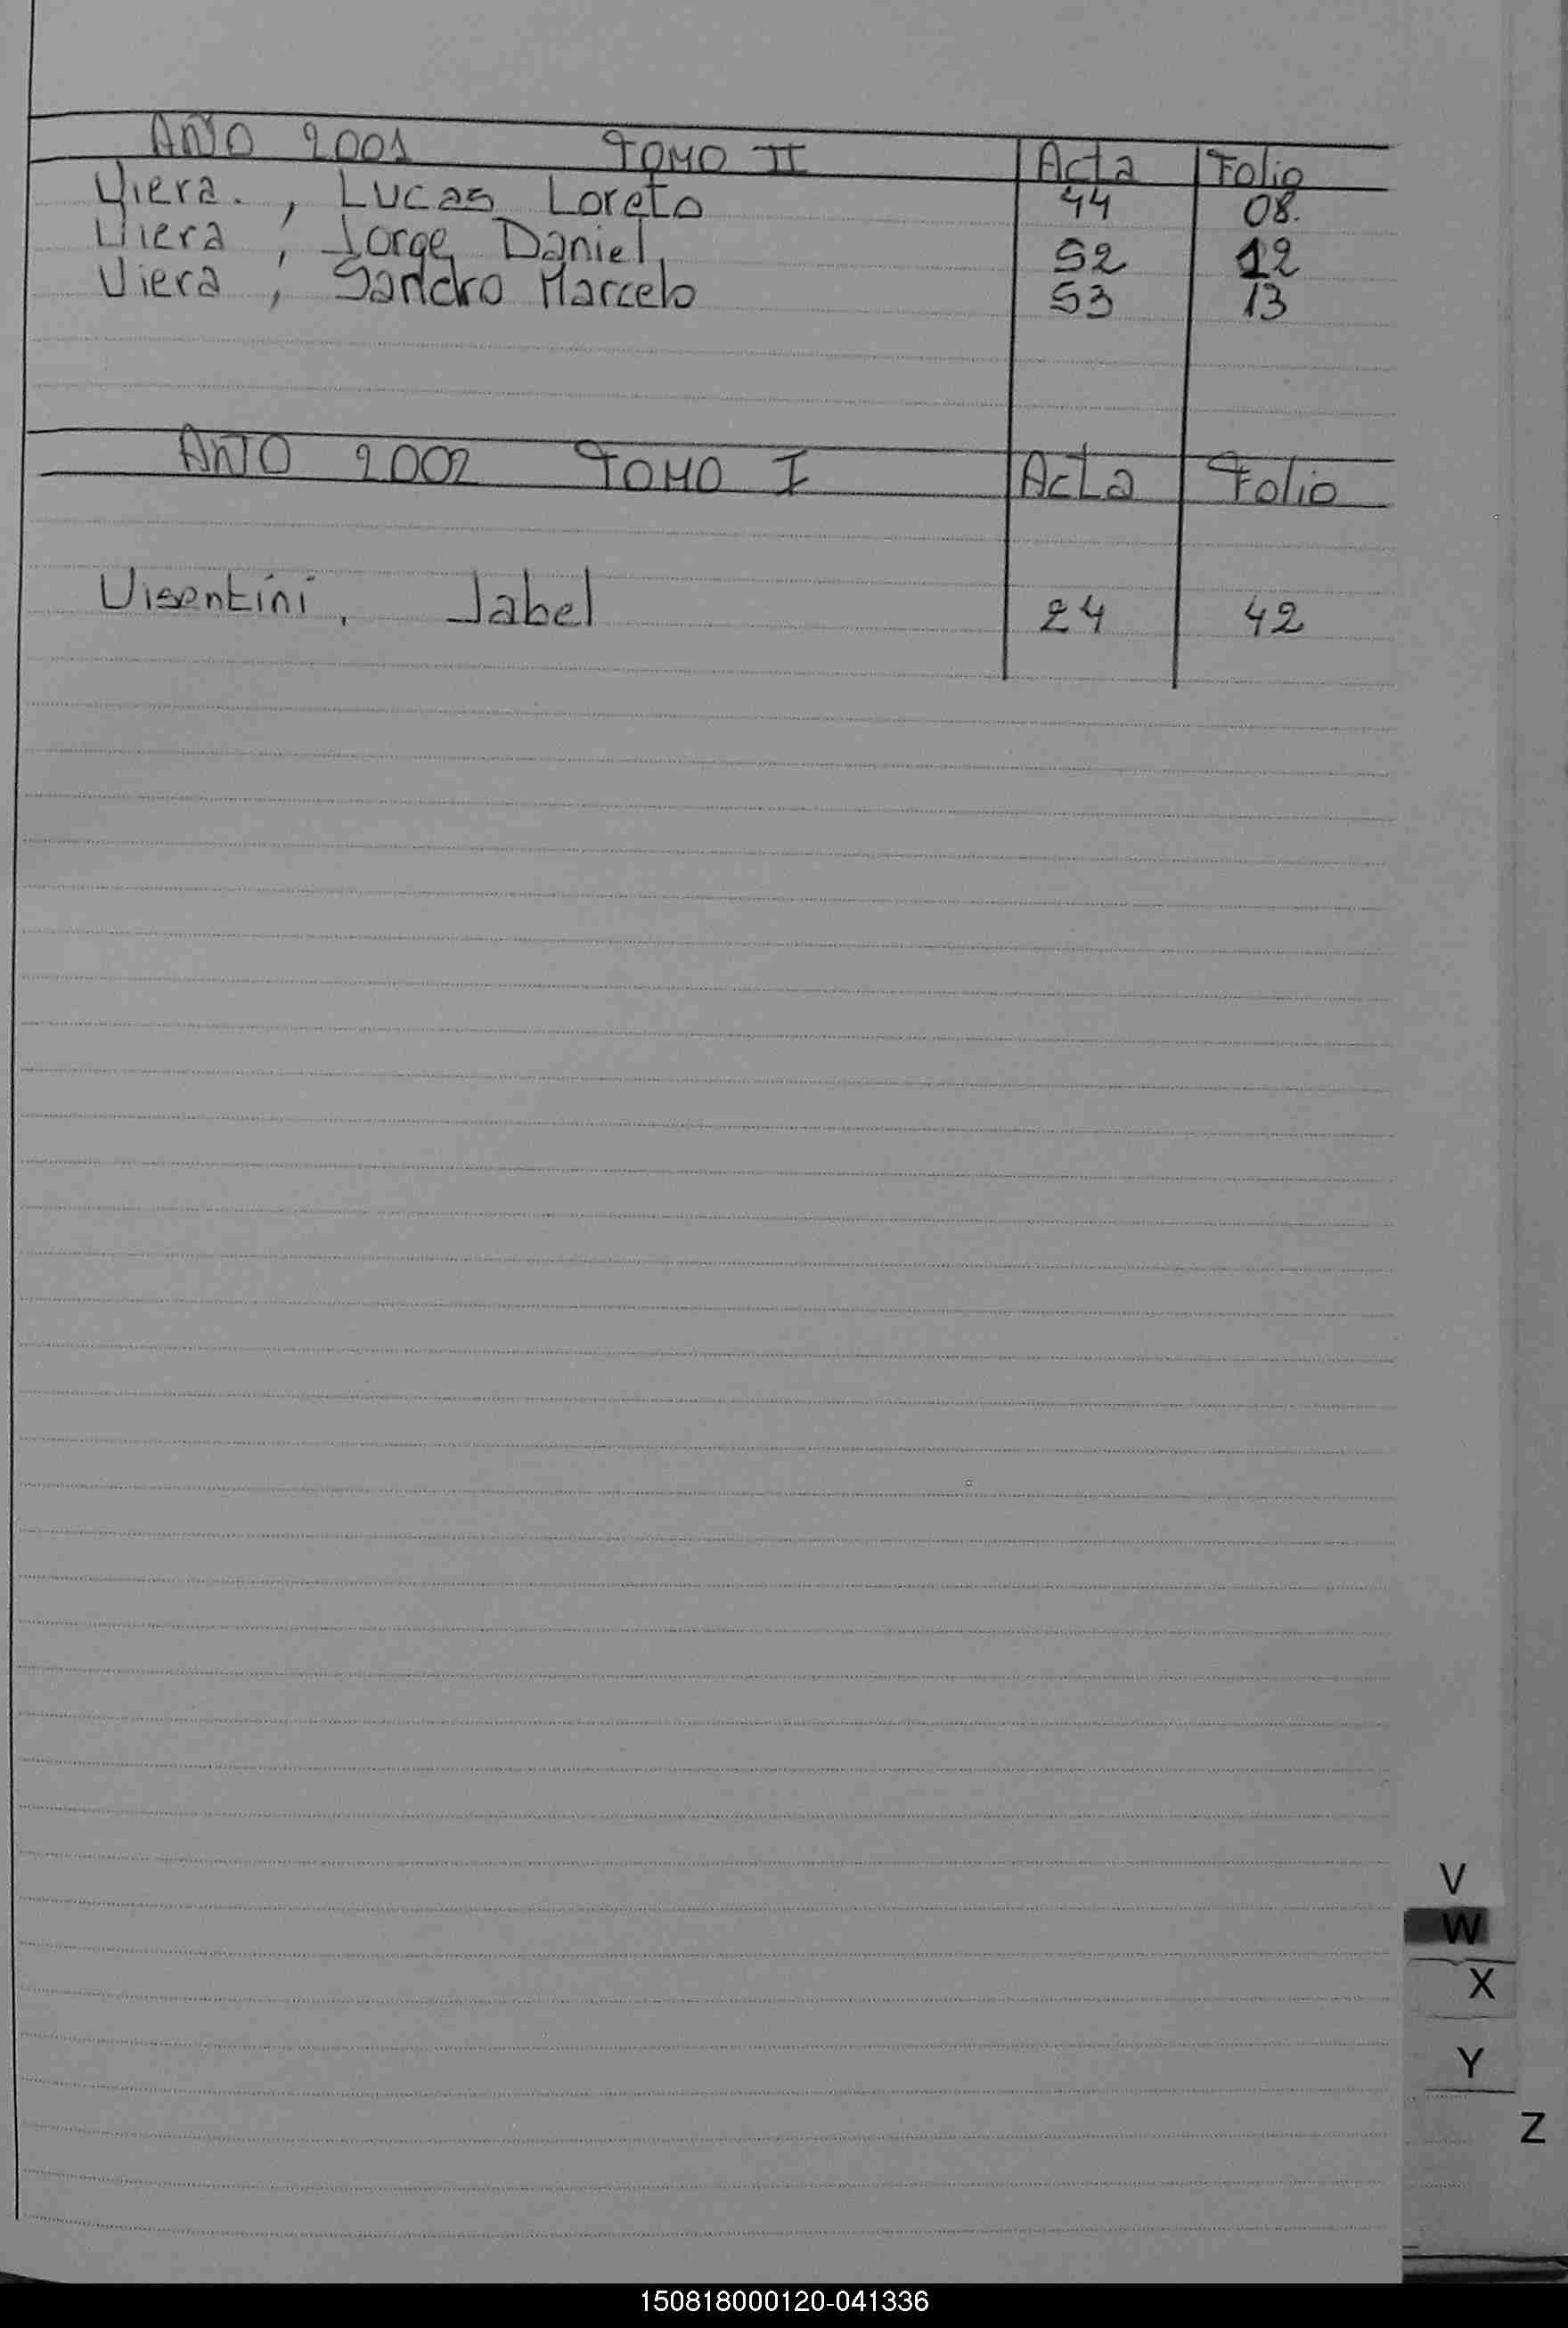 AÑO 2001 TOMO II Acta Folio
Viera. , Lucas Loreto 44 08.
Viera , Jorge Daniel 52 12
Viera , Sandro Marcelo 53 13
AÑO 2002 TOMO I Acta Folio
Visentini, Jabel 24 42
V
W
X
Y
Z
150818000120-041336